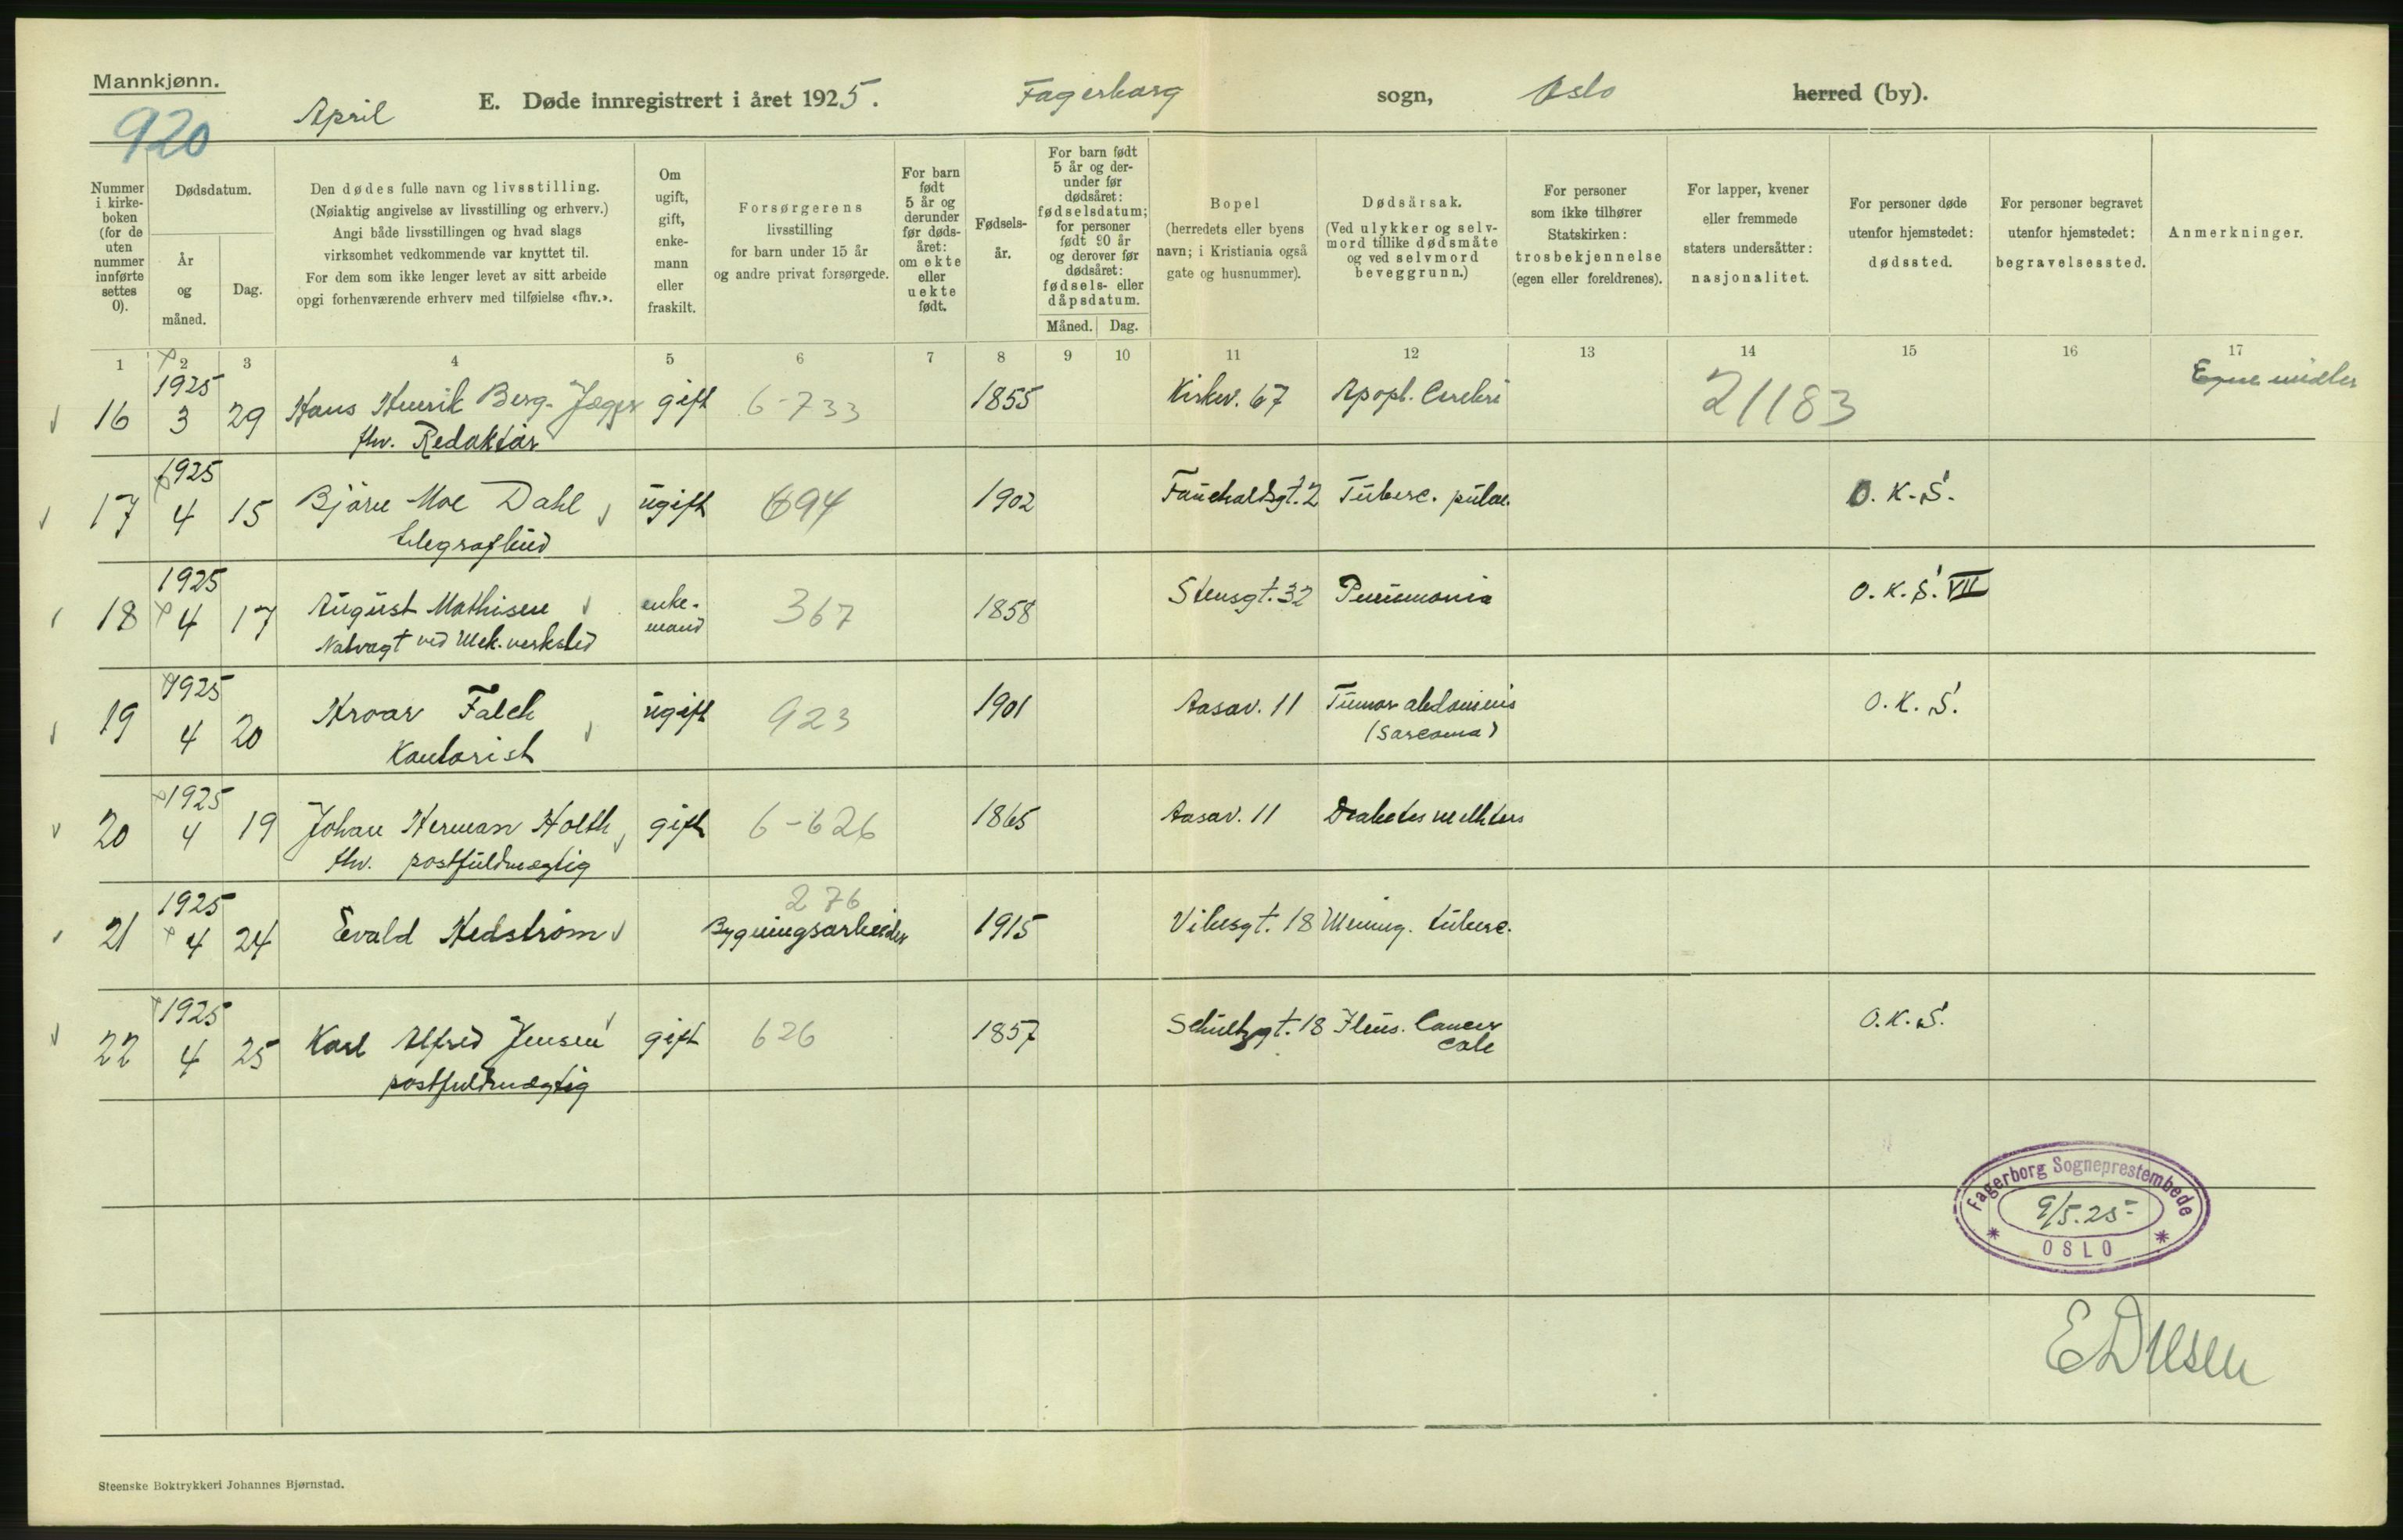 Mannkjønn.
920
April
E. Døde innregistrert i året 1925.
Fagerborg sogn, Oslo herred (by).
Nummer i kirke-boken (for de uten nummer innførte settes 0).
Dødsdatum.
År og måned.
Dag.
Den dødes fulle navn og livsstilling.
(Nøiaktig angivelse av livsstilling og erhverv.)
Angi både livsstillingen og hvad slags
virksomhet vedkommende var knyttet til.
For dem som ikke lenger levet av sitt arbeide
opgi forhenværende erhverv med tilføielse «fhv.».
Om ugift, gift, enke-mann eller fraskilt.
Forsørgerens
livsstilling
for barn under 15 år
og andre privat forsørgede.
For barn født 5 år og derunder før døds-året: om ekte eller uekte født.
Fødsels-år.
For barn født 5 år og der-under før dødsåret: fødselsdatum; for personer født 90 år og derover før dødsåret: fødsels- eller dåpsdatum.
Måned. Dag.
Bopel
(herredets eller byens
navn; i Kristiania også
gate og husnummer).
Dødsårsak.
(Ved ulykker og selv-
mord tillike dødsmåte
og ved selvmord
beveggrunn.)
For personer
som ikke tilhører
Statskirken:
trosbekjennelse
(egen eller foreldrenes).
For lapper, kvener
eller fremmede
staters undersåtter:
nasjonalitet.
For personer døde
utenfor hjemstedet:
dødssted.
For personer begravet
utenfor hjemstedet:
begravelsessted.
Anmerkninger.
1 2 3 4 5 6 7 8 9 10 11 12 13 14 15 16 17
16 1925 3 29 Hans Henrik Berg-Jæger gift 6-733 1855 Kirkev. 67 Apopl. Cerebri 21183 Egne midler
fhv. Redaktør
17 1925 4 15 Bjarne Moe Dahl ugift 694 1902 Fauchaldsgt. 2 Tuberc. pulm. O.K.S.
telegrafbud
18 1925 4 17 August Mathisen enke-mand 367 1858 Stensgt. 32 Pneumonia O.K.S. VII
Natvagt ved Mek. verksted
19 1925 4 20 Hroar Falck ugift 923 1901 Aasav. 11 Tumor abdominis O.K.S.
Kontorist (Sarcoma)
20 1925 4 19 Johan Herman Holth gift 6-626 1865 Aasav. 11 Diabetes mellitus
fhv. postfuldmægtig
276
21 1925 4 24 Evald Hedstrøm Bygningsarbeider 1915 Vibesgt. 18 Mening. tuberc.
22 1925 4 25 Karl Alfred Jensen gift 626 1857 Schultzgt. 18 Ileus. Cancer coli O.K.S.
postfuldmægtig
Fagerborg Sogneprestembede
9/5.25
OSLO
Steenske Boktrykkeri Johannes Bjørnstad.